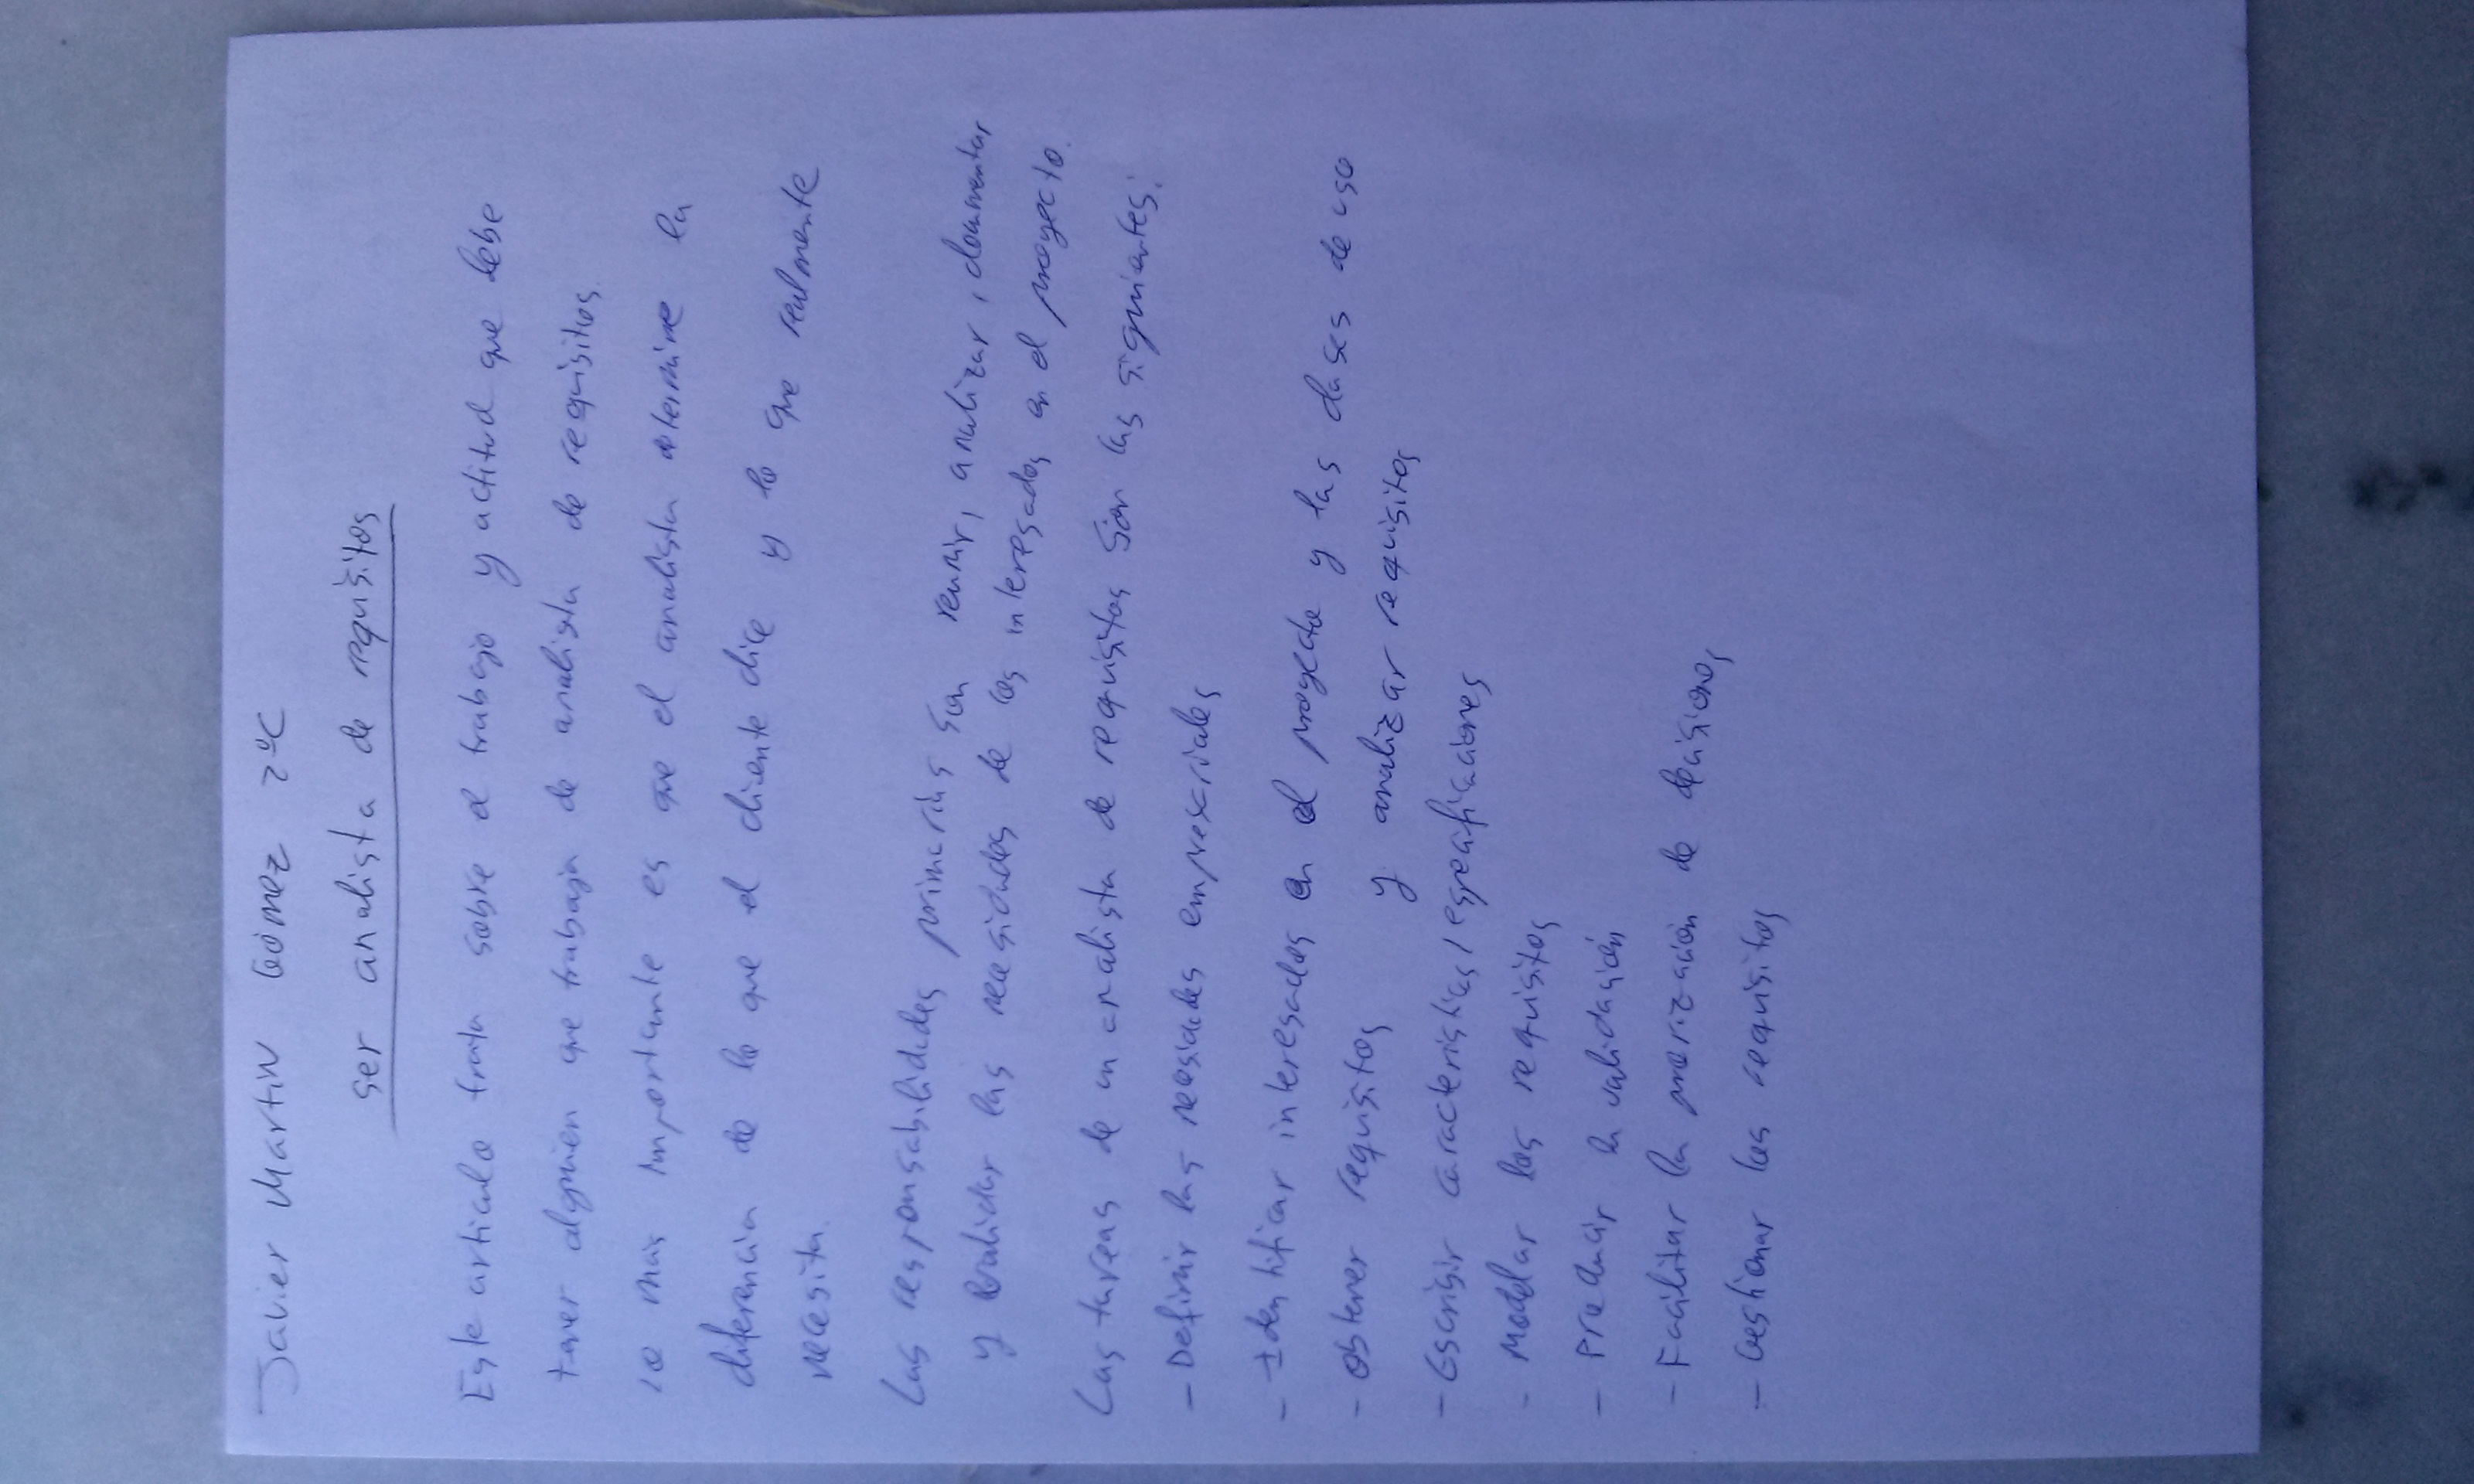 Javier Martin Gómez 2ºC
ser analista de requisitos
Este articulo trata sobre el trabajo y actitud que debe
tener alguien que trabaja de analista de requisitos.
Lo mas importante es que el analista determine la
diferencia de lo que el cliente dice y lo que realmente
necesita.
Las responsabilidades primarias son reunir, analizar, documentar
y validar las necesidades de los interesados en el proyecto.
Las tareas de un analista de requisitos son las siguientes:
- Definir las necesidades empresariales
- Identificar interesados en el proyecto y las clases de uso
- Obtener requisitos y analizar requisitos
- Escribir caracteristicas/especificaciones
- Modelar los requisitos
- Producir la validación
- Facilitar la priorización de decisiones
- Gestionar los requisitos